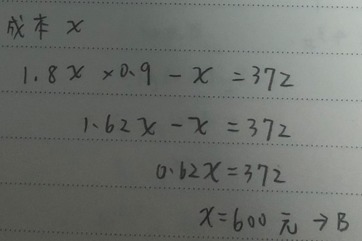 成本 x
1.8x×0.9-x=372
1.62x-x=372
0.62x=372
x=600元→B